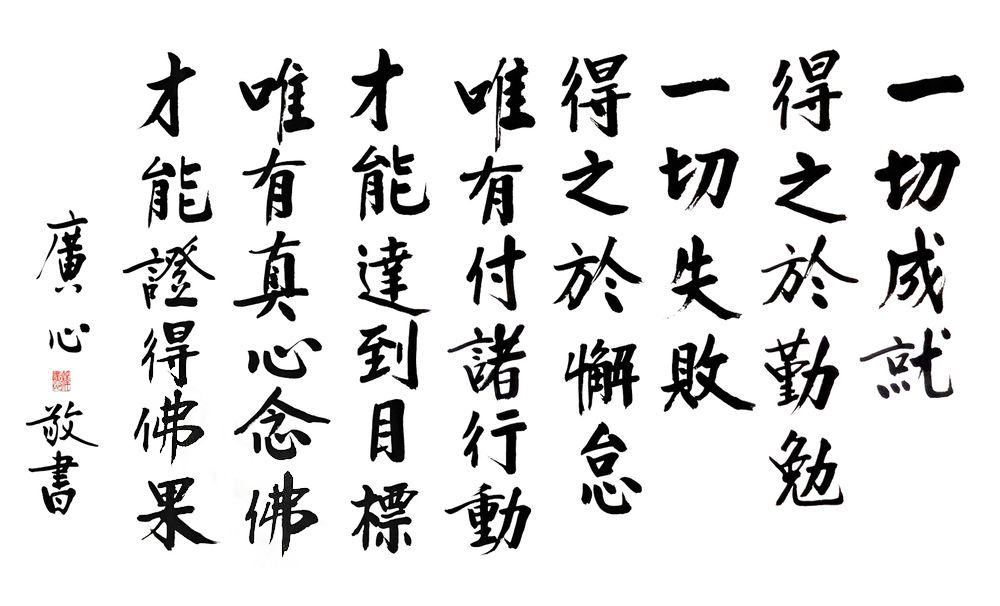 一切成就
得之於勤勉
一切失敗
得之於懈怠
唯有付諸行動
才能達到目標
唯有真心念佛
才能證得佛果
廣心敬書